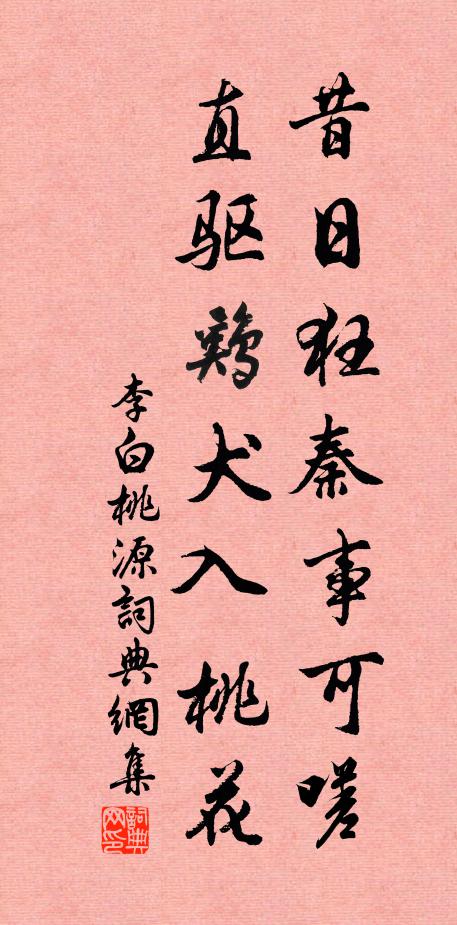 昔日狂秦事可嗟
直驱鷄犬入桃花
李白桃源詞典網集
詞典网印